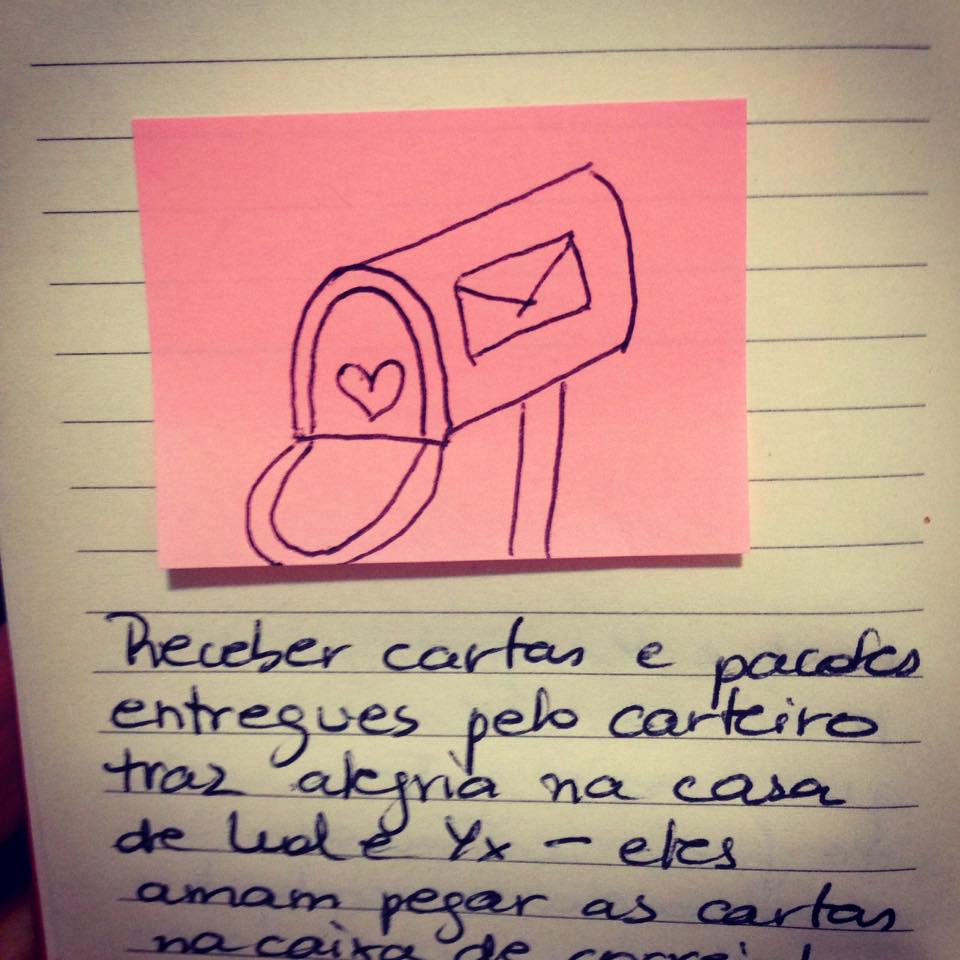 Receber cartas e pacotes
entregues pelo carteiro
traz alegria na casa
de e Yx – eles
amam pegar as cartas
na caixa de